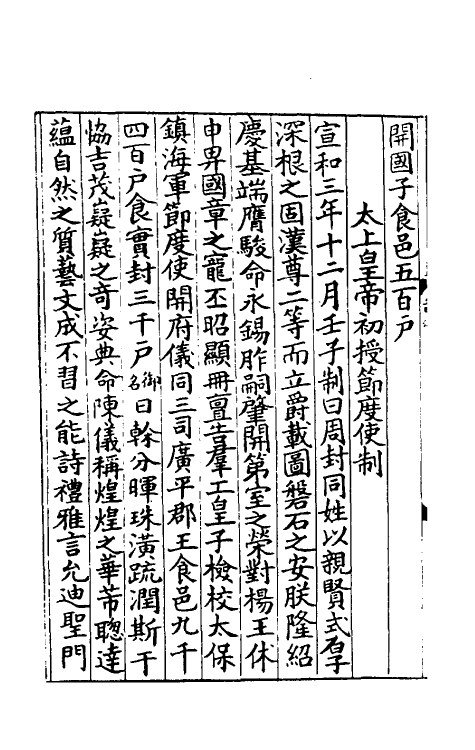 開國子食邑五百户
太上皇帝初授節度使制
宣和三年十二月壬子制曰周封同姓以親賢式存
深根之固漢尊二等而立爵載圖磐石之安朕隆紹
慶基端膺駿命永錫胙嗣肇開第室之榮對楊王休
申畀國章之寵丕昭顯冊亶告羣工皇子檢校太保
鎮海軍節度使開府儀同三司廣平郡王食邑九千
四百户食實封三千户御名日榦分暉珠潢疏潤斯干
恊吉茂嶷嶷之奇姿典命陳儀稱煌煌之華芾聦達
蘊自然之質藝文成不習之能詩禮雅言允迪聖門